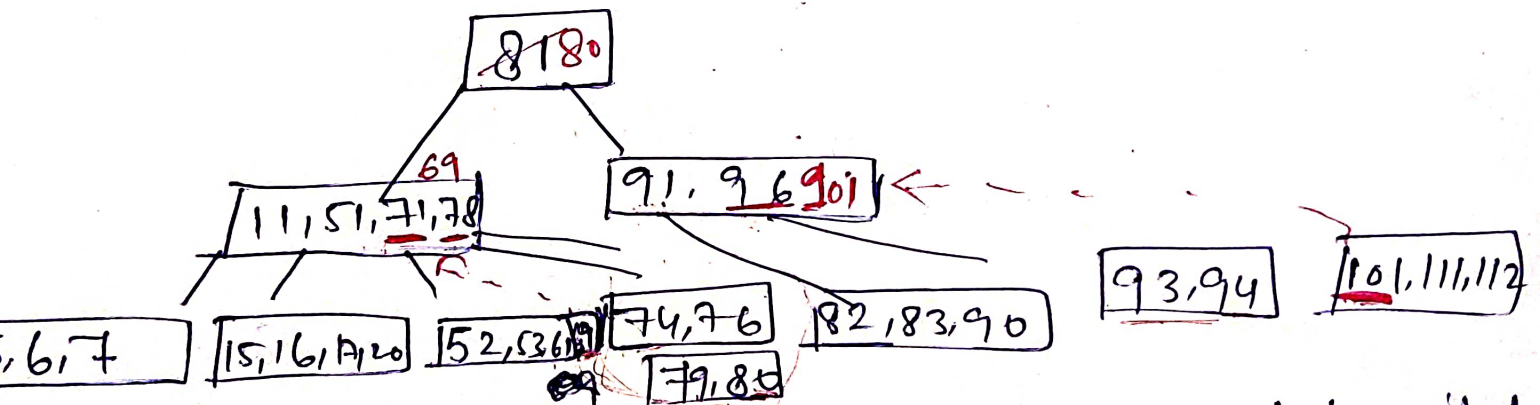 81 80
69
11, 51, 71, 78
91. 96 901
, 6, 7
15, 16, 17, 20
52, 53, 6
74, 76
82, 83, 90
93, 94
101, 111, 112
79, 80